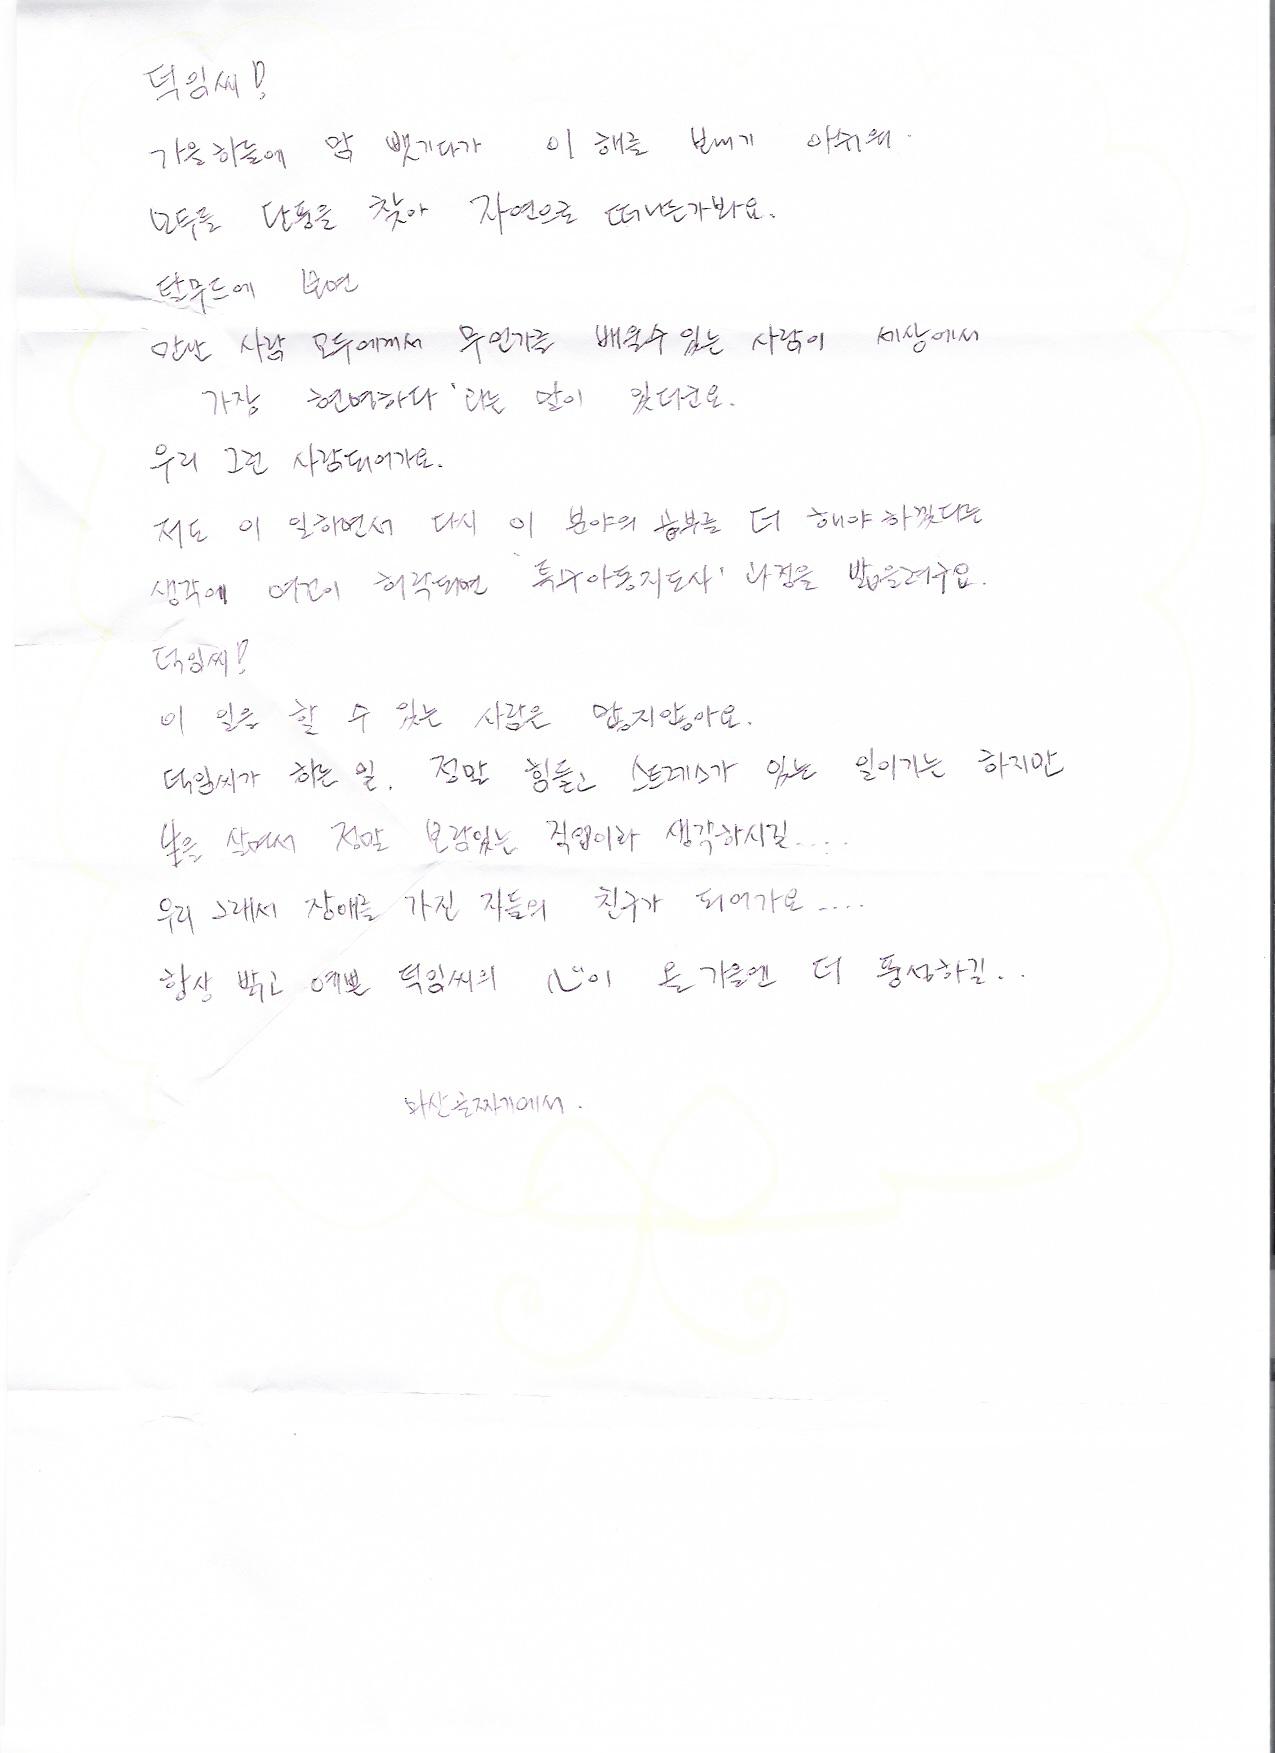 덕임씨!
가을하늘에 맘 뺏기다가 이 해를 보내기 아쉬워
모두들 단풍을 찾아 자연으로 떠나는가봐요.
탈무드에 보면
만난 사람 모두에게서 무언가를 배울수 있는 사람이 세상에서
가장 현명하다'라는 말이 있더군요.
우리 그런 사람되어가요.
저도 이 일하면서 다시 이 분야의 공부를 더 해야하겠다는
생각에 여건이 허락되면 '특수아동지도사' 과정을 밟을려구요.
덕임씨!
이 일을 할 수 있는 사람은 많지않아요.
덕임씨가 하는 일. 정말 힘들고 스트레스가 있는 일이기는 하지만
삶을 살면서 정말 보람있는 직업이라 생각하시길....
우리 그래서 장애를 가진 자들의 친구가 되어가요....
항상 밝고 예쁜 덕임씨의 心이 올 가을엔 더 풍성하길..
골짜기에서.